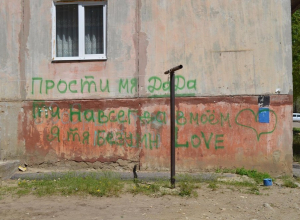 Прости мя Дада
Ты навсегда в моём
Я тя безумн Love